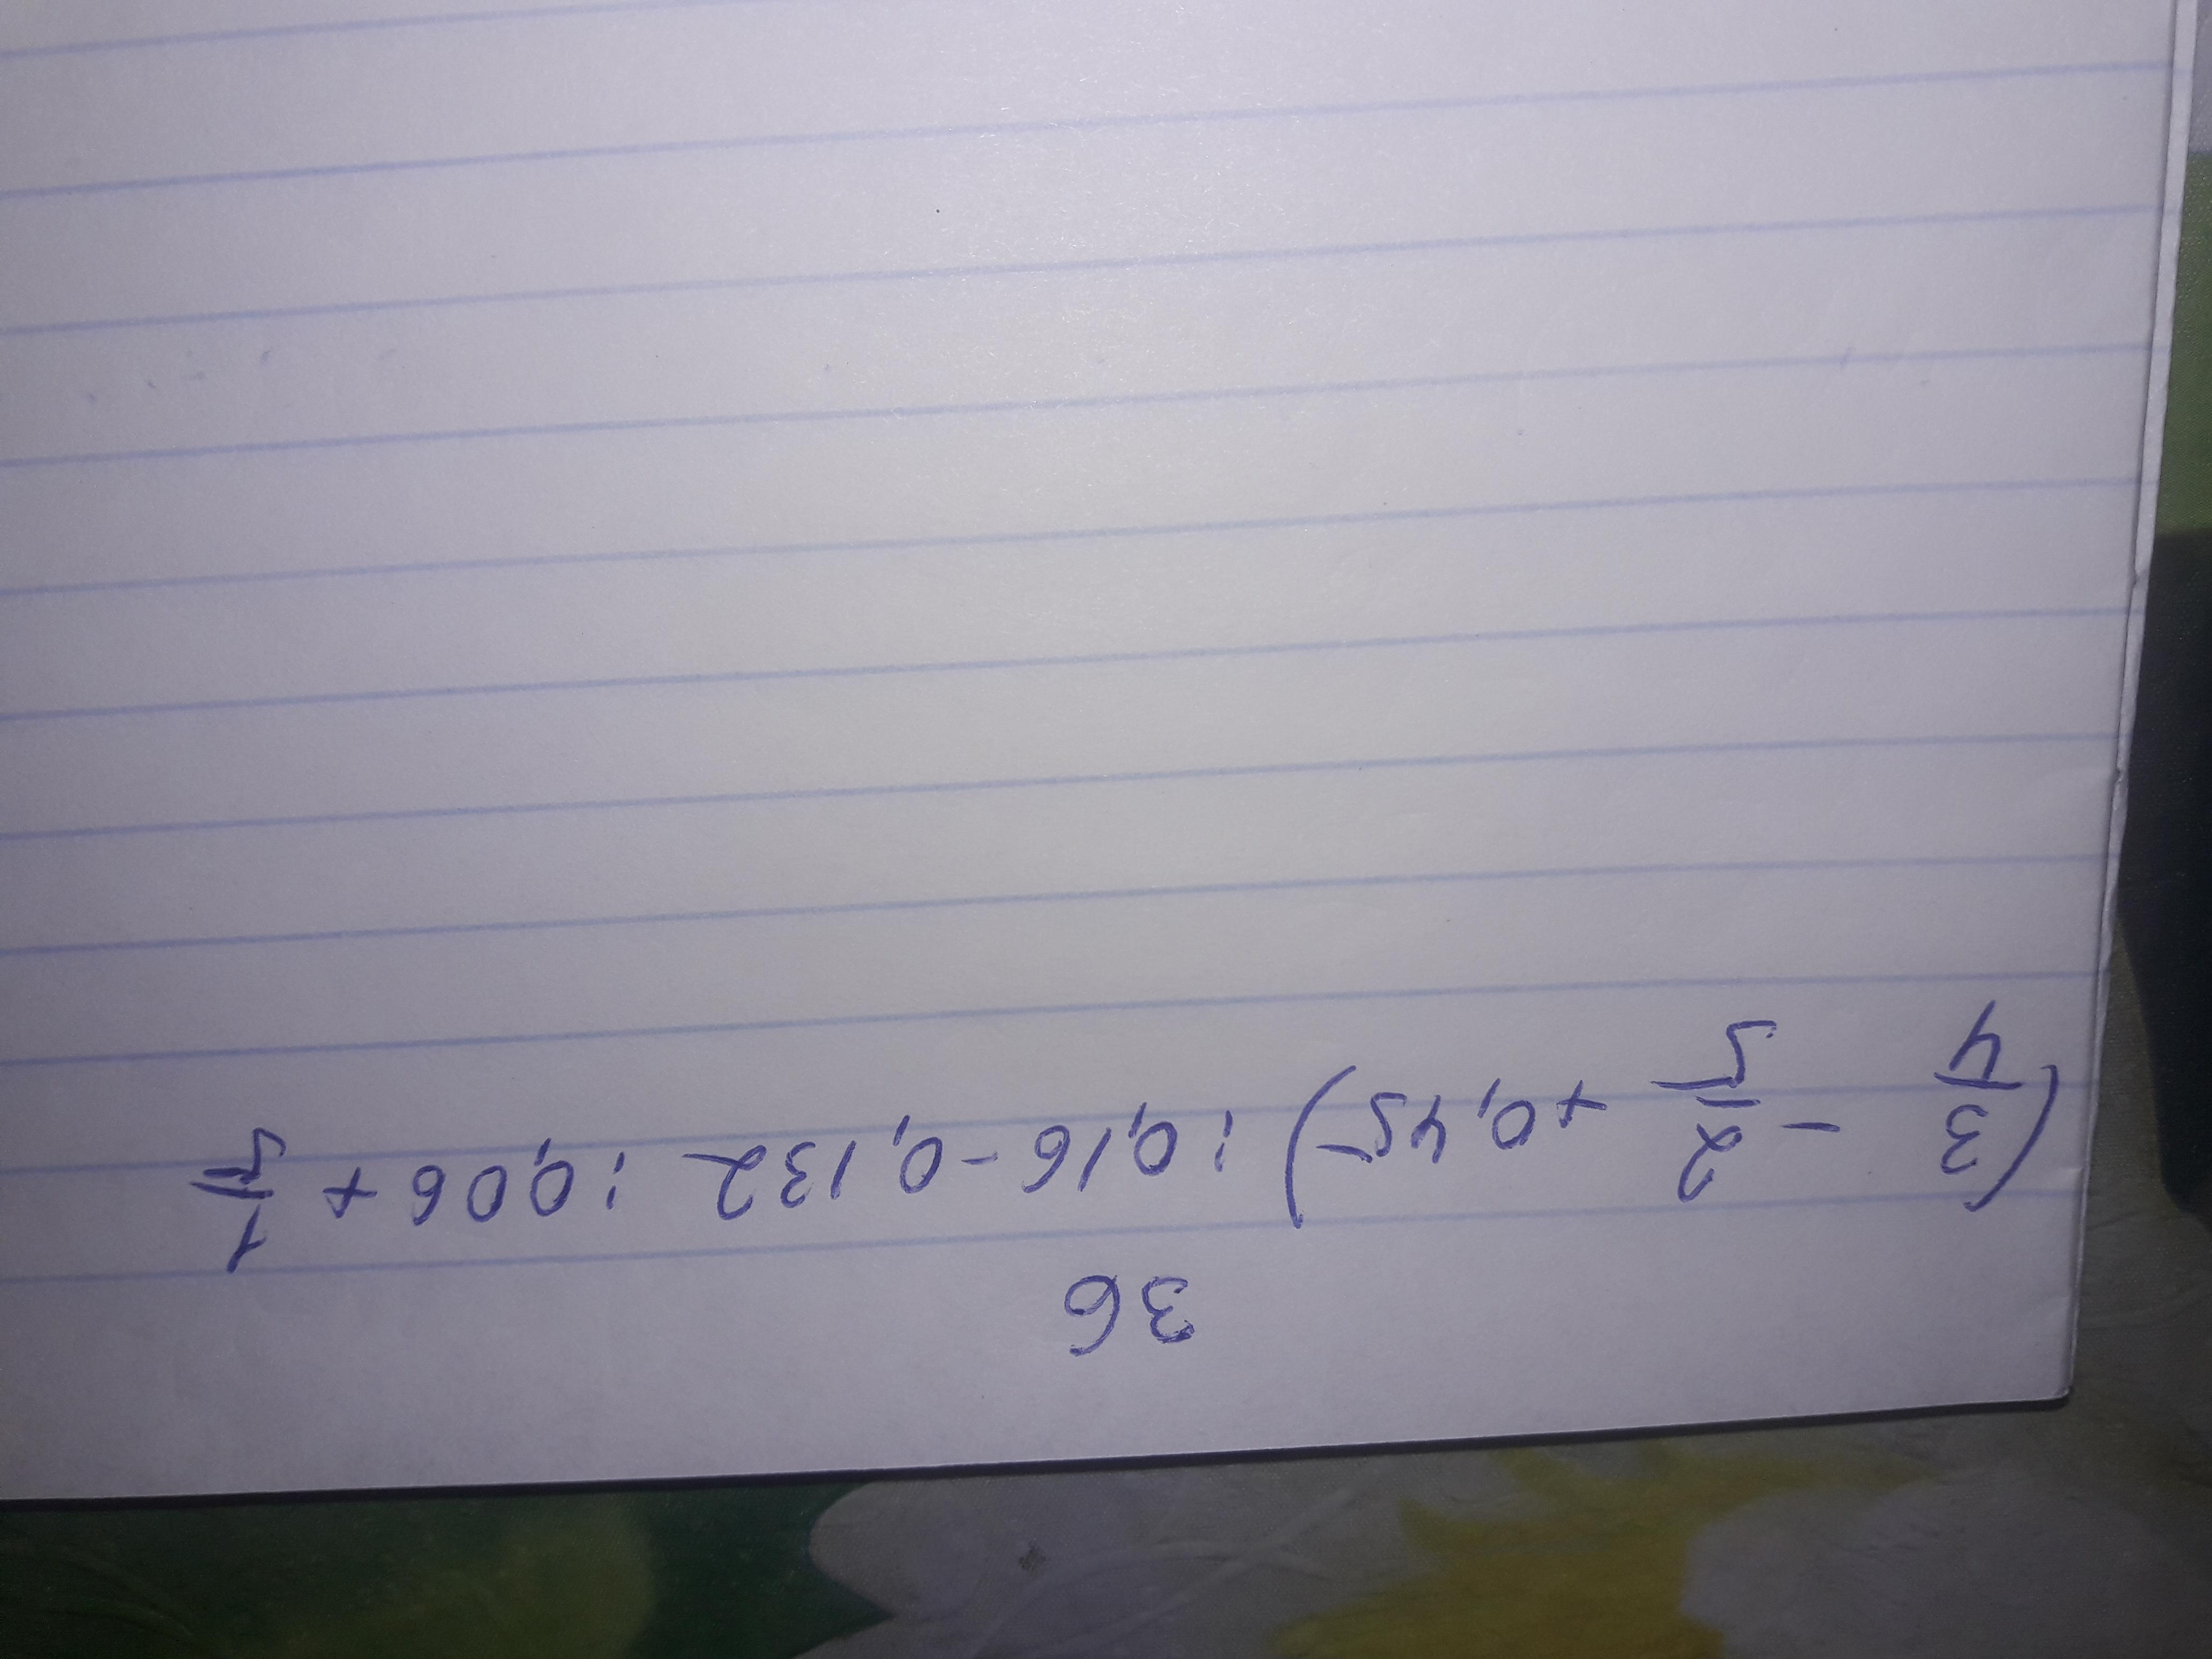 36
(3/4 - 2/5 + 0,45) : 0,16 - 0,132 : 0,06 + 1/5